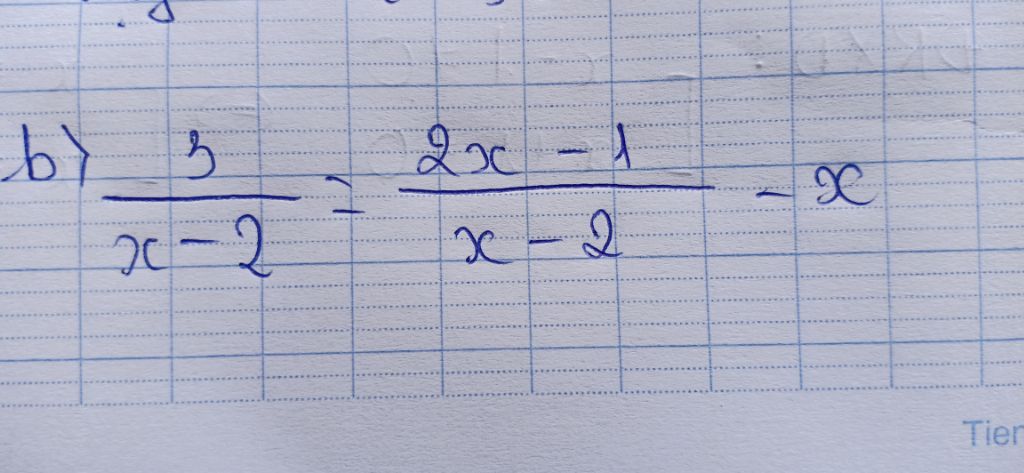 b) \frac{3}{x-2} = \frac{2x-1}{x-2} - x
Tien